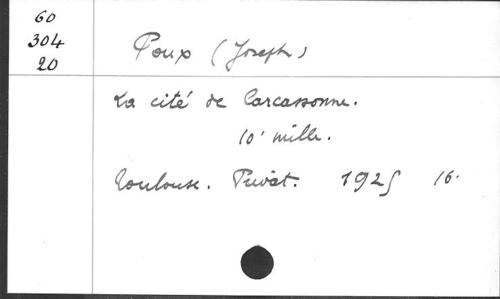 60
304
20
Poux (Joseph)
La cité de Carcassonne.
10' mille.
Toulouse. Privat. 1925 16.